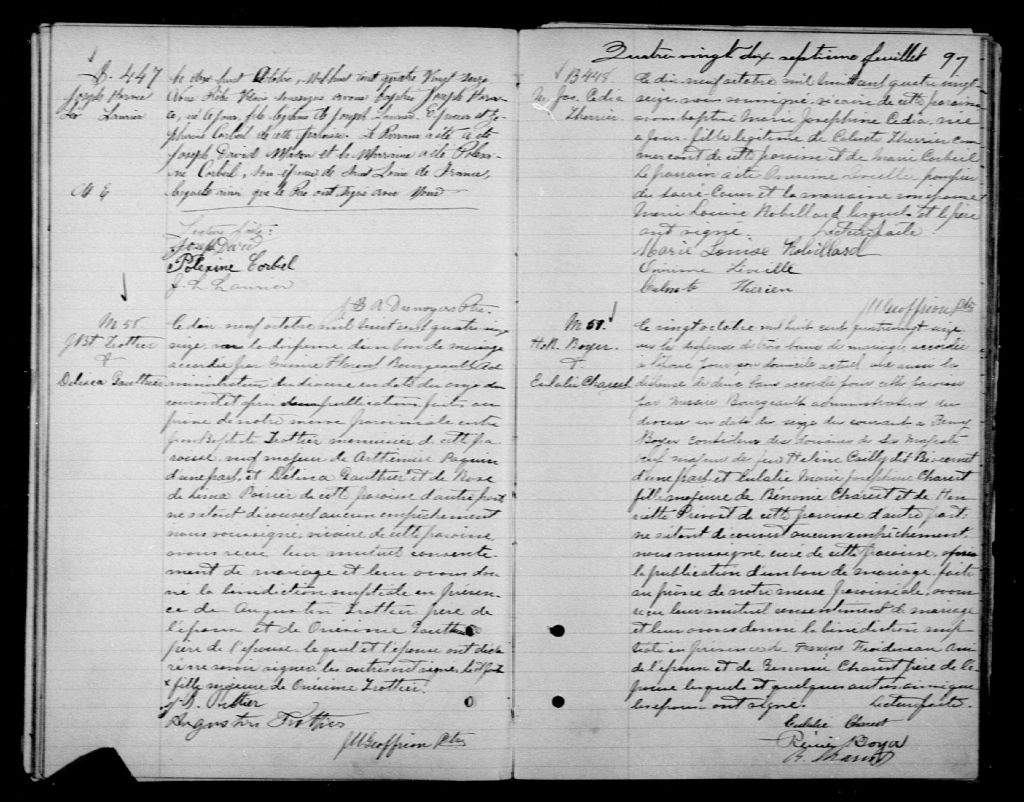 B. 447
Joseph Horace
Lo Laurier
Le dix huit Octobre, Mil huit cent quatre Vingt seize
Nous Prêtre Vicaire soussigné avons baptisé Joseph Hora-
ce, né le jour, fils légitime de Joseph Laurier, Epicier et Jo-
séphine Corbeil de cette Paroisse. Le Parrain a été
Joseph David Maçon et la Marraine a été Polexi-
ne Corbeil, son épouse de Saint Louis de France,
lesquels ainsi que le Père ont signé avec Nous
Lecture faite:
Joseph David
Polexine Corbel
J. L. Laurier
J. B. A. Desnoyers Ptre.
M 56.
J Bt Trottier
&
Delisca Gauthier
Le dix neuf octobre mil huit cent quatre vingt
seize, vu la dispense d'un ban de mariage
accordée par Messire Florent Bourgeault ad-
ministrateur du diocèse en date du onze du
courant et publication faite au
prône de notre messe paroissiale entre
Jean Baptiste Trottier menuisier de cette pa-
roisse, veuf majeur de Arthémise Paquin
d'une part, et Delisca Gauthier et de Rose
de Lima Poirier de cette paroisse d'autre part
ne s'étant découvert aucun empêchement
nous soussigné, vicaire de cette paroisse
avons reçu leur mutuel consente-
ment de mariage et leur avons don-
né la bénédiction nuptiale en présen-
ce de Augustin Trottier père de
l'époux et de Onésime Gauthier
père de l'épouse, lequel et l'épouse ont décla-
ré ne savoir signer les autres ont signé.
x fille majeure de Onésime Trottier.
Augustin Trottier
JU Geoffrion Ptre
Quatre vingt dix septième feuillet 97
B 448.
M. Jos. Cedia
Therrier.
Le dix neuf octobre mil huit cent quatre vingt
seize, nous soussigné, vicaire de cette paroisse
avons baptisé Marie Josephine Cedia, née
ce jour, fille légitime de Calixte Therrier com-
merçant de cette paroisse et de Marie Corbeil
Le parrain a été Onesime Léveillé pompier
de Sacré-Coeur et la marraine son épouse
Marie Louise Robillard lesquels et le père
ont signé. Lecture faite.
Marie Louise Robillard
Onésime Léveille
Calixte Therien
JU Geoffrion Ptre
M 57.
H. R. Boyer
&
Eulalie Charest
Le vingt octobre mil huit cent quatre vingt seize,
vu la dispense de trois bans de mariage, accordée
son domicile actuel, vu aussi la
dispense de deux bans accordée pour cette paroisse
par Messire Bourgeault administrateur du
diocèse en date du seize du courant à Remy
Boyer des douanes de Sa Majesté
veuf majeur de feu Héléne Cailly dit Biscornet
d'une part, et Eulalie Marie Josephine Charest
fille majeure de Bénonie Charest et de Hen-
riette Prénovt de cette paroisse d'autre part.
ne s'étant découvert aucun empêchement.
nous soussigné, curé de cette paroisse, après
la publication d'un ban de mariage faite
au prône de notre messe paroissiale, avons
reçu leur mutuel consentement de mariage
et leur avons donné la bénédiction nup-
tiale en présence de ami
de l'époux et de Bénonie Charest père de l'é-
pouse lesquels et quelques autres ainsi que
les époux ont signé. Lecture faite.
Eulalie Charest
Rémi Boyer